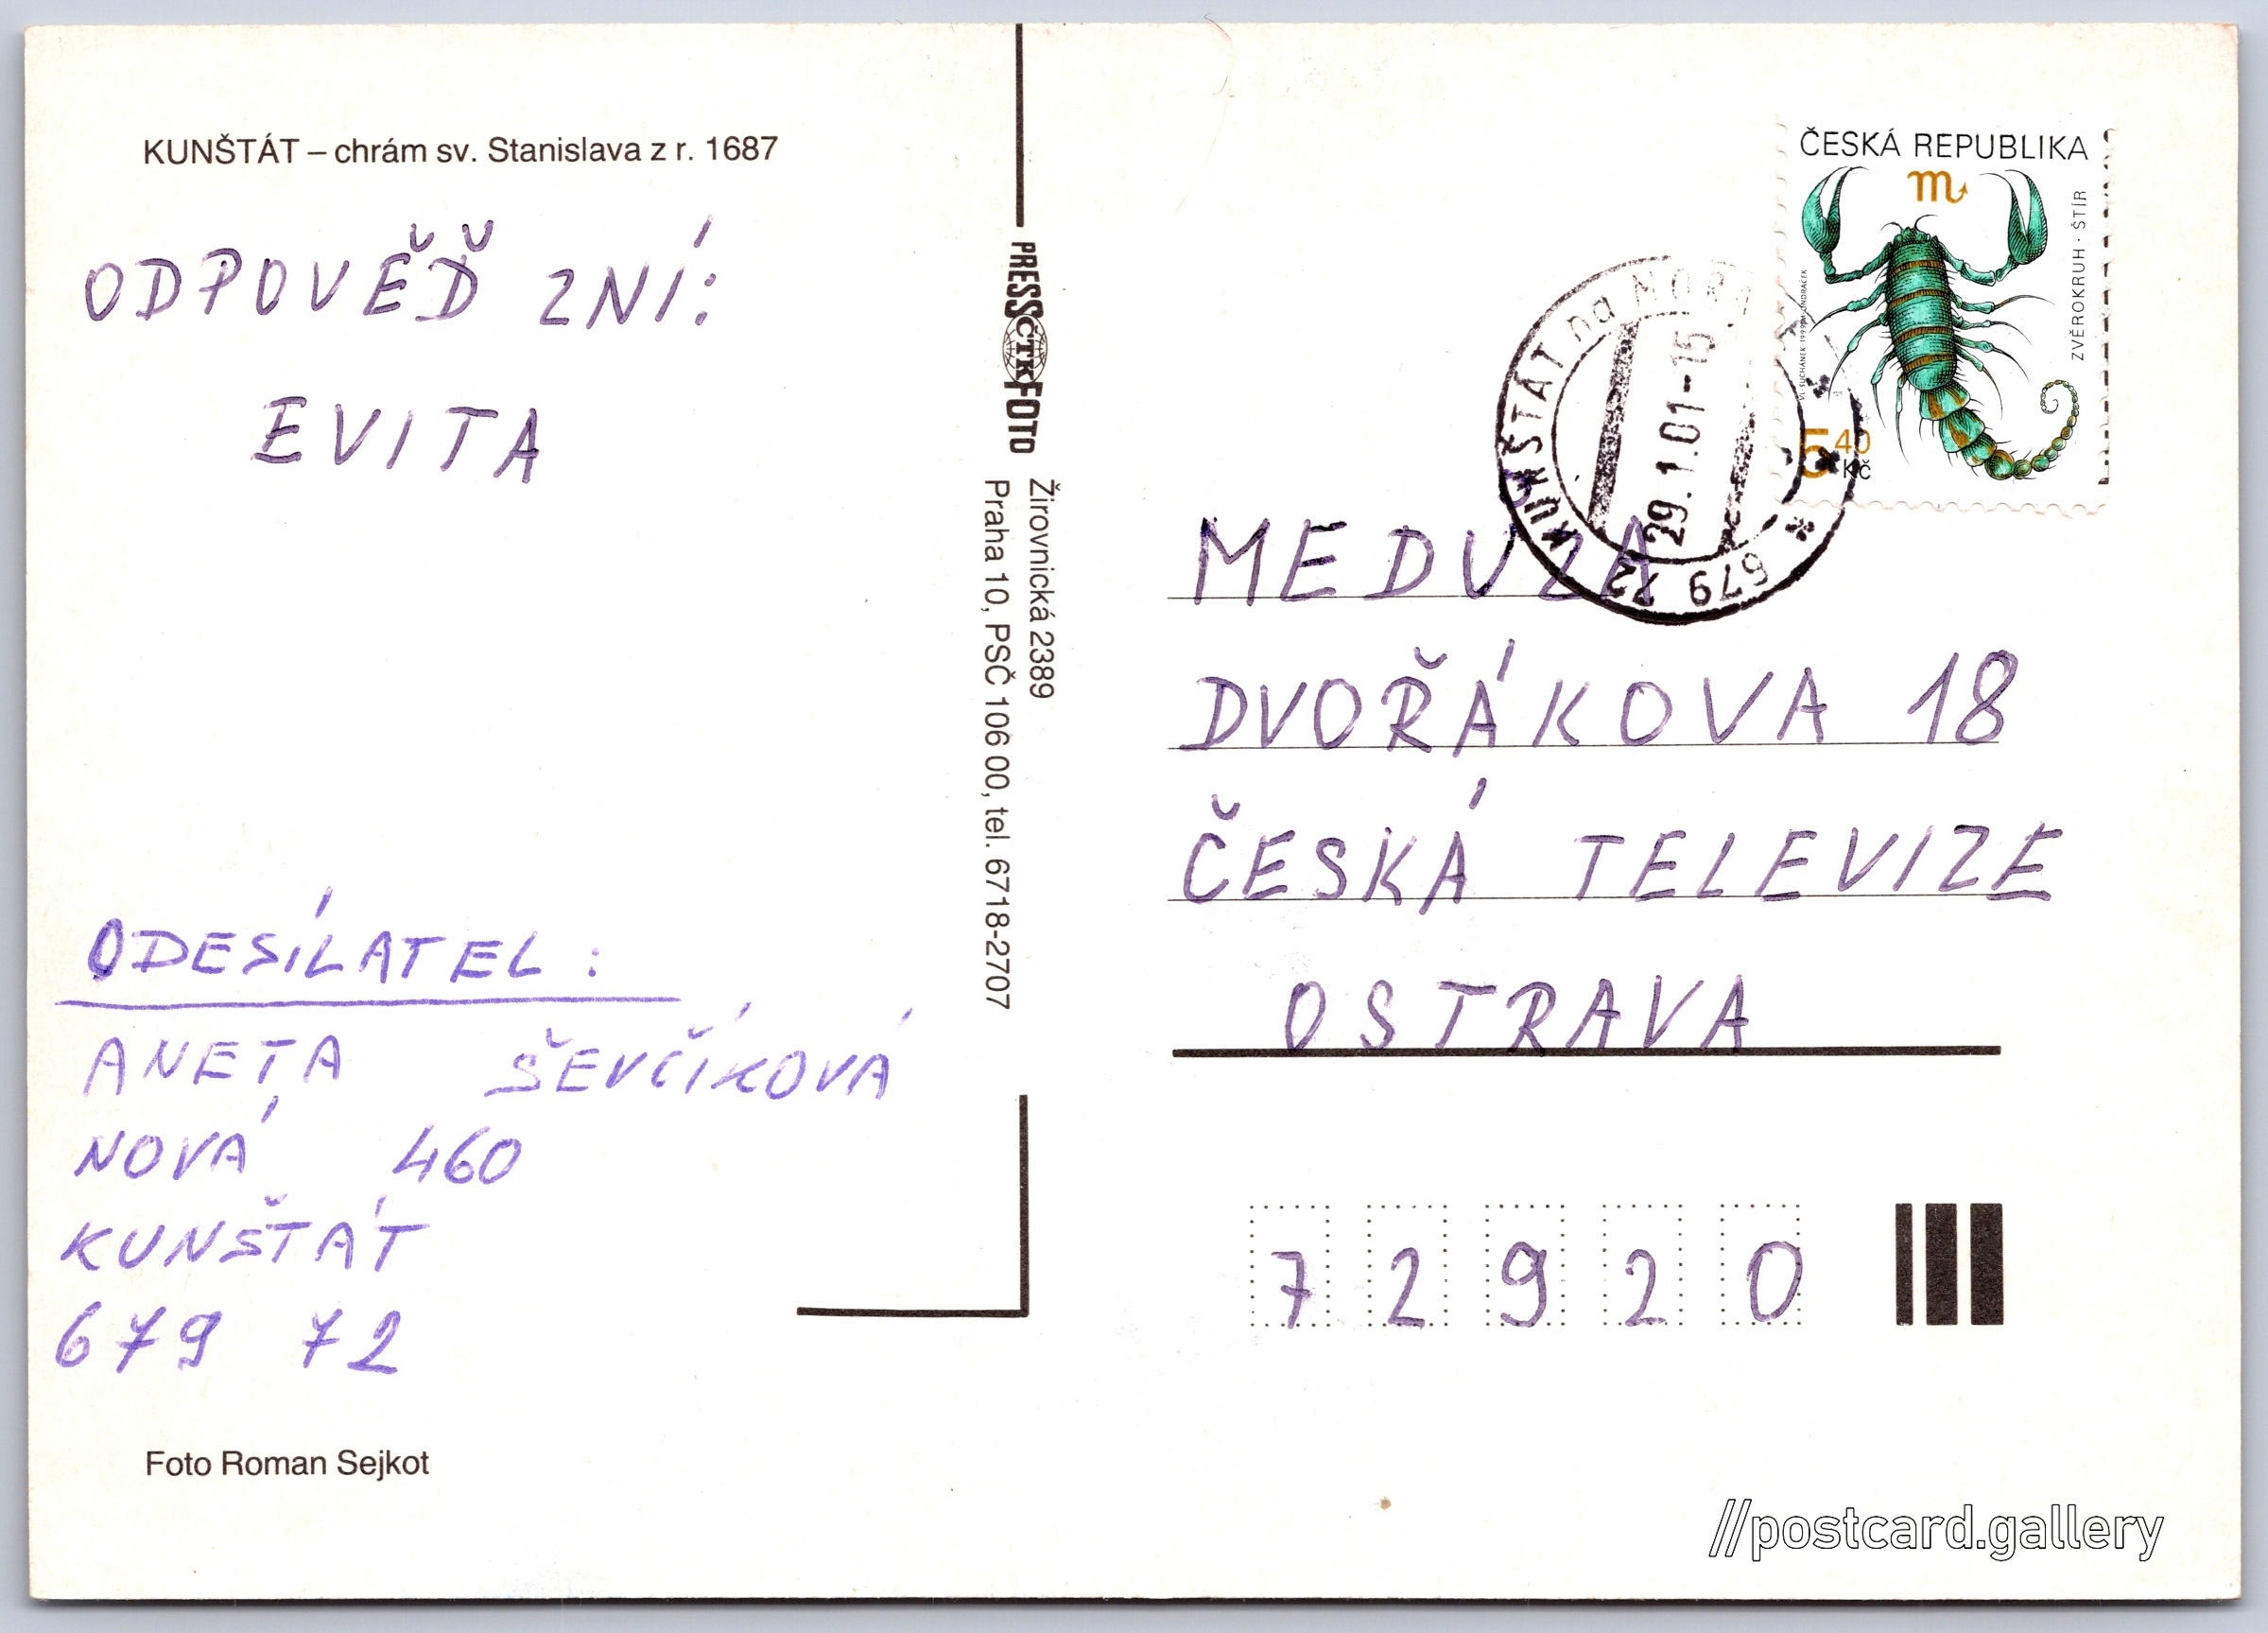 KUNŠTÁT – chrám sv. Stanislava z r. 1687
ODPOVĚĎ ZNÍ:
EVITA
ODESÍLATEL:
ANETA ŠEVČÍKOVÁ
NOVÁ 460
KUNŠTÁT
679 72
Foto Roman Sejkot
PRESSFOTO
ČTK
Žirovnická 2389
Praha 10, PSČ 106 00, tel. 6718-2707
ČESKÁ REPUBLIKA
ZVĚROKRUH · ŠTÍR
5 40
Kč
KUNŠTÁT na MOR
29.1.01-15
679 72
MEDUZA
DVOŘÁKOVA 18
ČESKÁ TELEVIZE
OSTRAVA
72920
//postcard.gallery